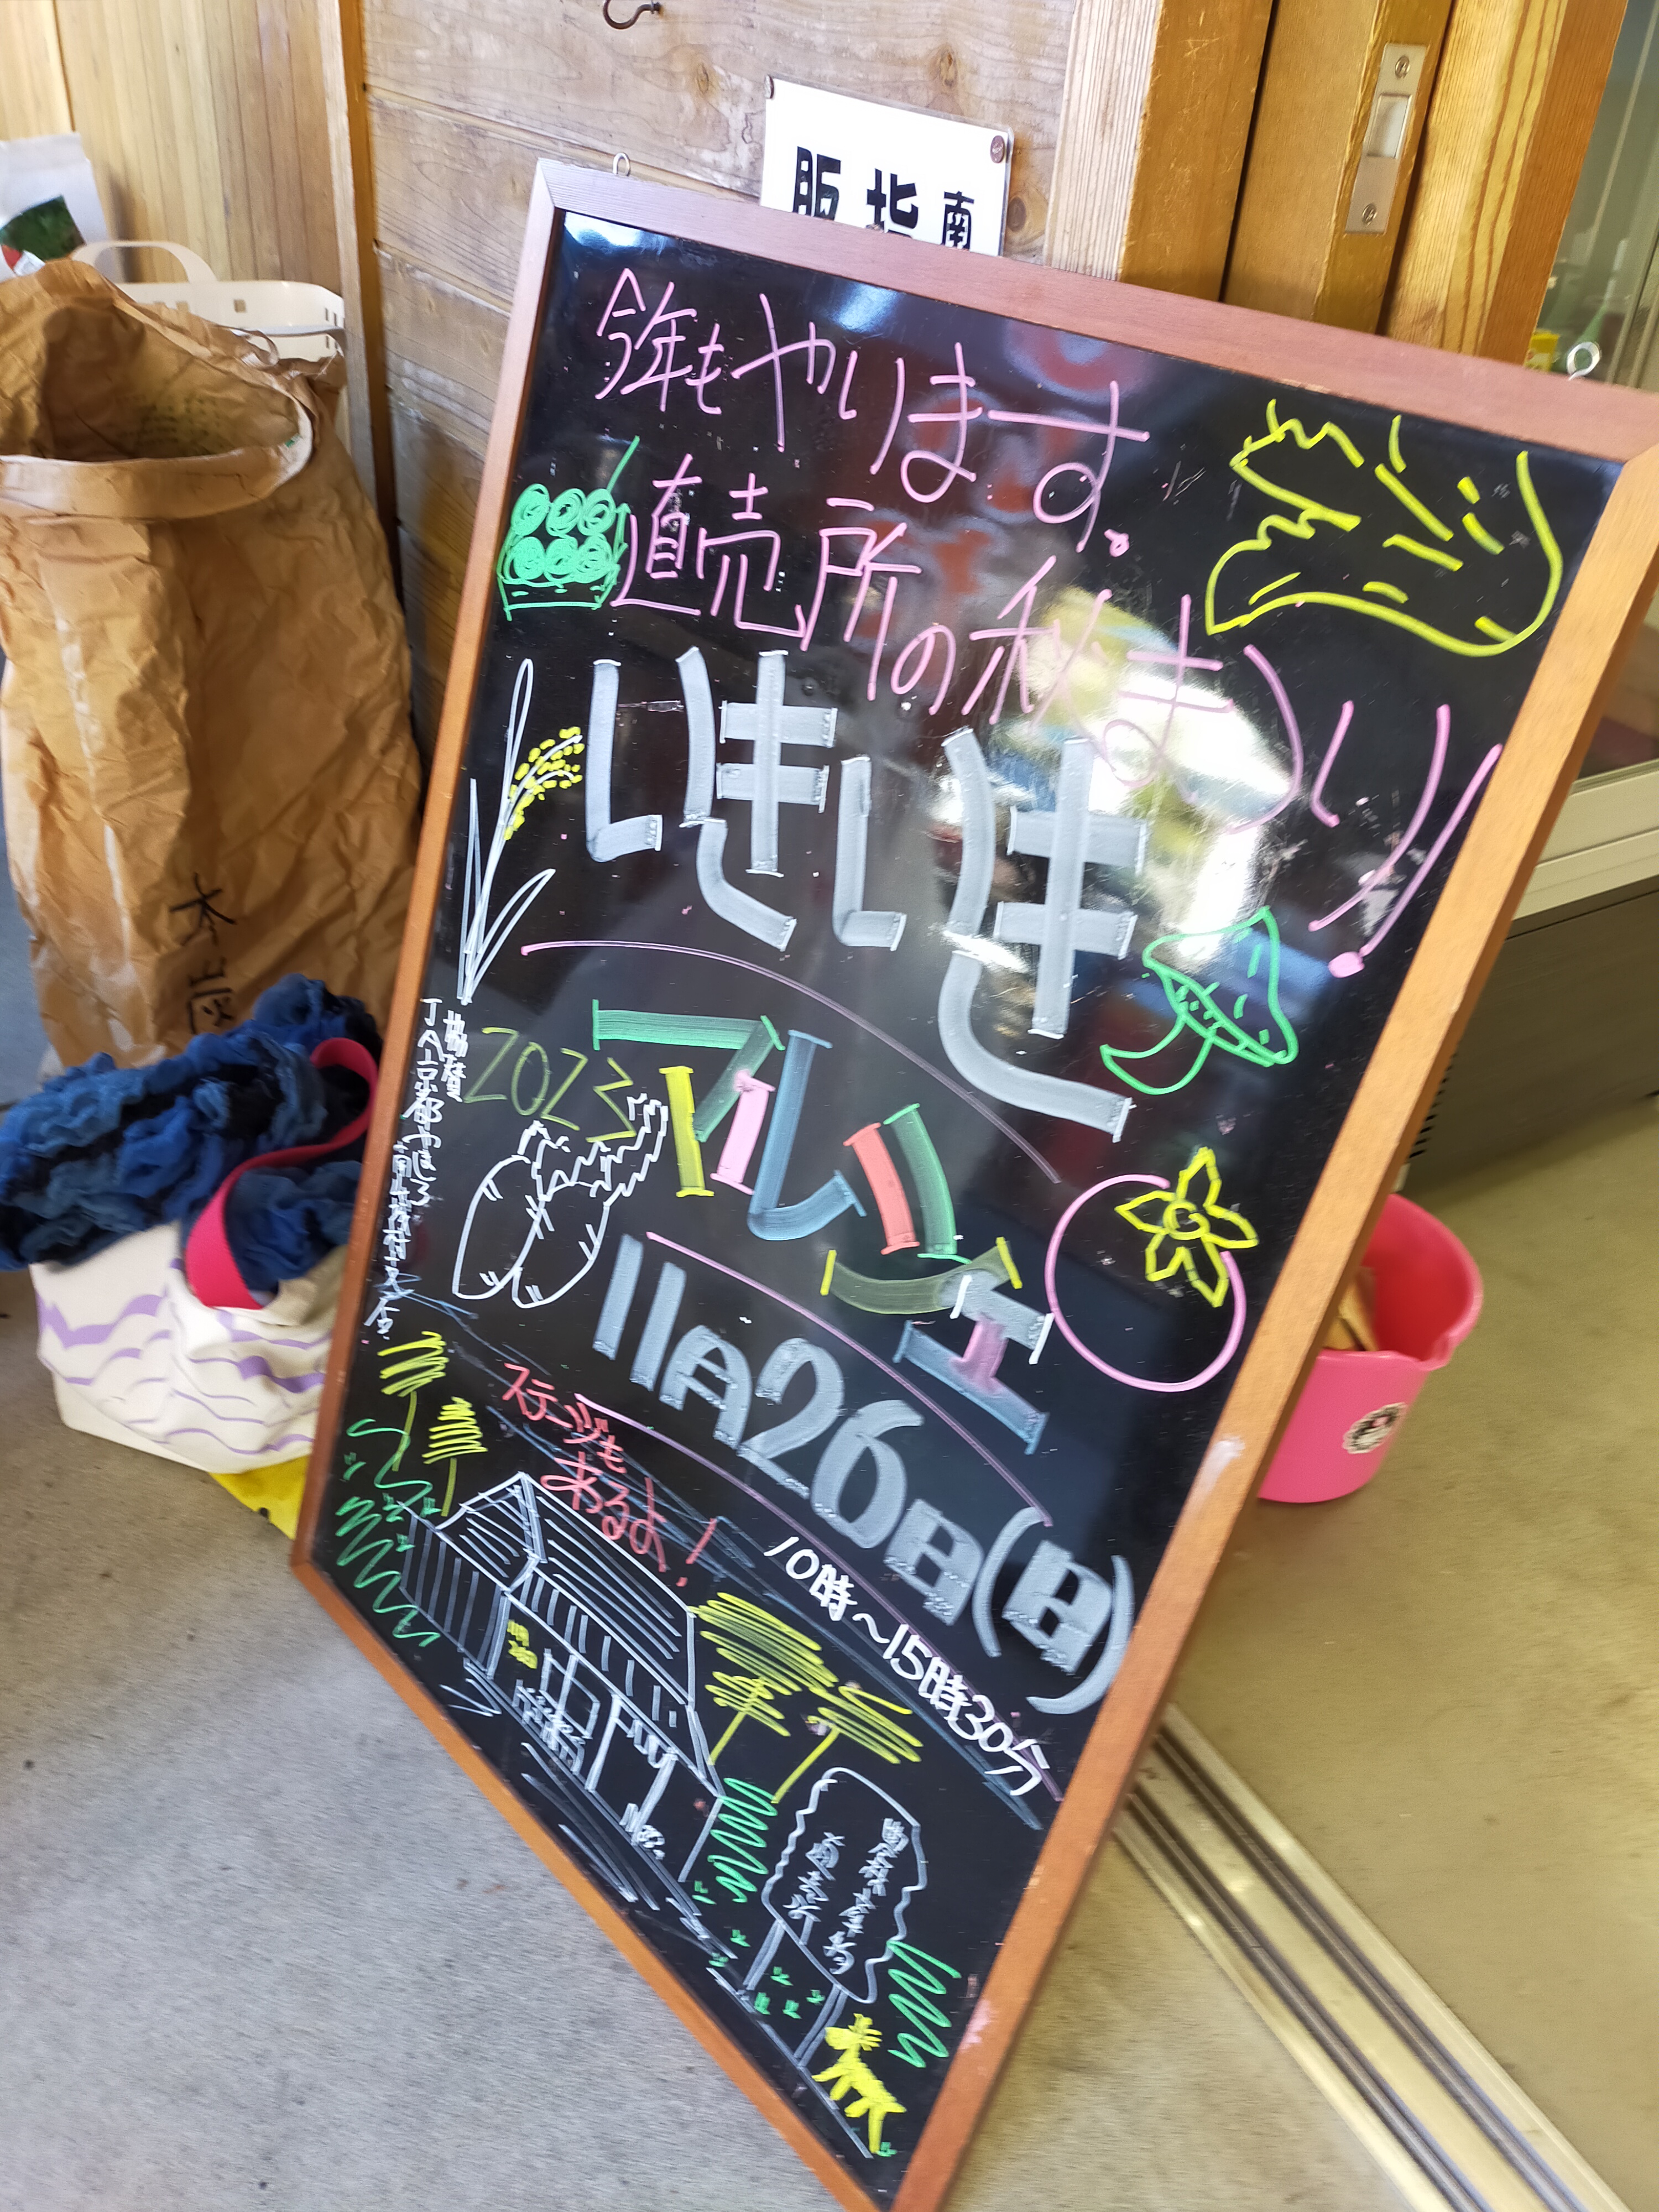 販指南
今年もやります。
直売所の秋まつり!!
いきいき
2023
マルシェ
11月26日(日)
10時〜15時30分
ステージも
あるよ!
協賛
JA京都やましろ
木炭